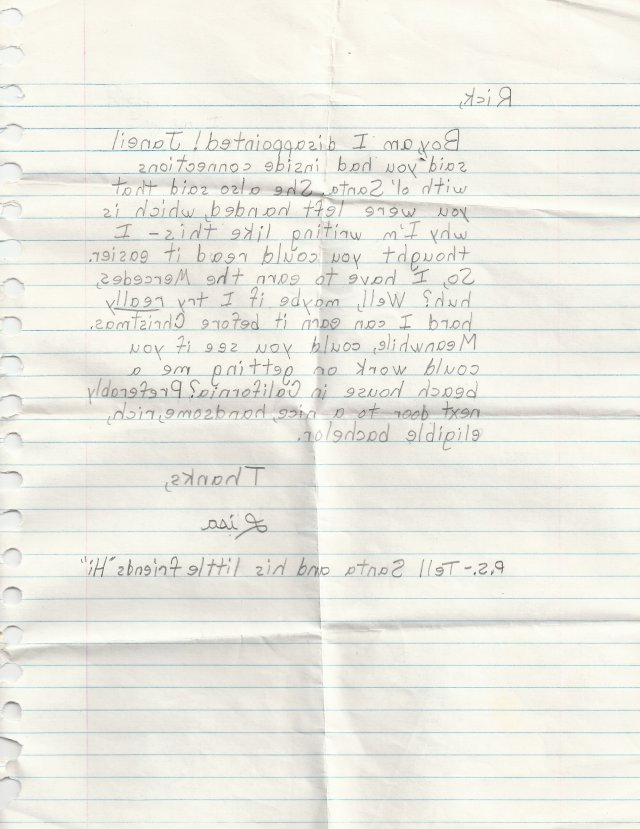 Rick,
Boy am I disappointed! Janeil
said you had inside connections
with ol' Santa. She also said that
you were left handed, which is
why I'm writing like this - I
thought you could read it easier.
So, I have to earn the Mercedes,
huh? Well, maybe if I try really
hard I can earn it before Christmas.
Meanwhile, could you see if you
could work on getting me a
beach house in California? Preferably
next door to a nice, handsome, rich,
eligible bachelor.
Thanks,
Lisa
P.S. - Tell Santa and his little friends "Hi"